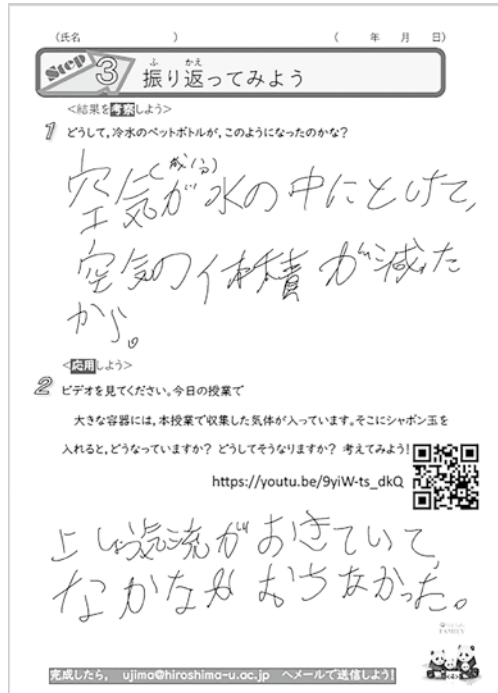 (氏名 ) ( 年 月 日)
Step 3 振り返ってみよう
<結果を考察しよう>
1 どうして,冷水のペットボトルが,このようになったのかな?
(成分)
空気が水の中にとけて,
空気の体積が減った
から。
<応用しよう>
2 ビデオを見てください。今日の授業で
大きな容器には,本授業で収集した気体が入っています。そこにシャボン玉を
入れると,どうなっていますか? どうしてそうなりますか? 考えてみよう!
https://youtu.be/9yiW-ts_dkQ
上しょう気流がおきていて,
なかなかおちなかった。
FAMILY
完成したら, ujima@hiroshima-u.ac.jp へメールで送信しよう!